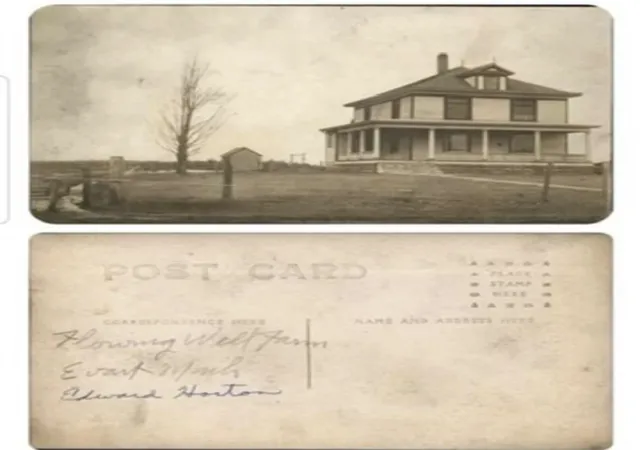 POST CARD
PLACE
STAMP
HERE
CORRESPONDENCE HERE
NAME AND ADDRESS HERE
Flowing Well Farm
Evart Mich
Edward Horton